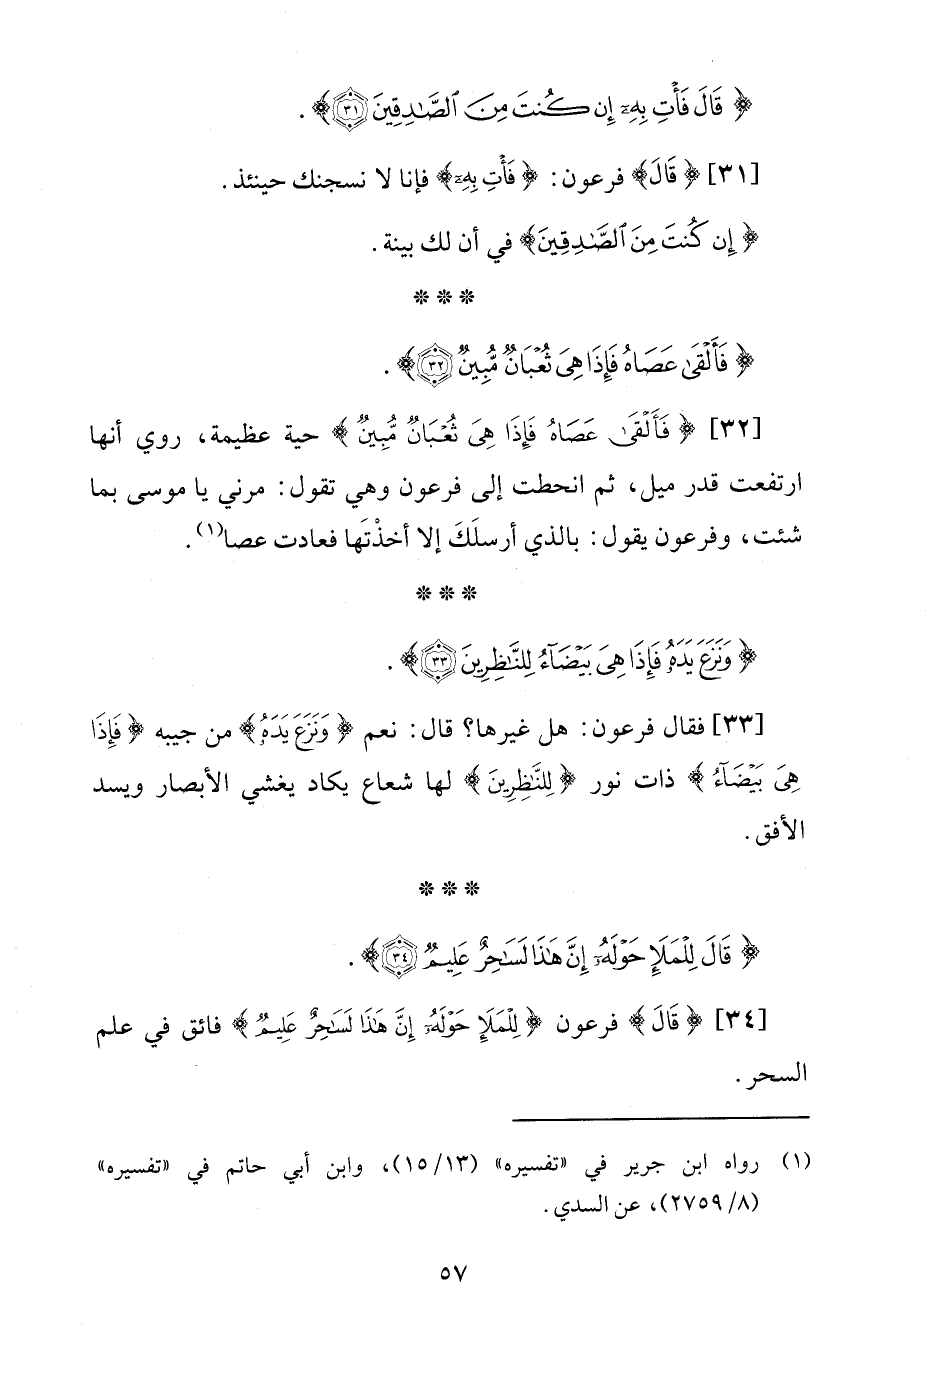 ﴿ قَالَ فَأْتِ بِهِۦٓ إِن كُنتَ مِنَ ٱلصَّٰدِقِينَ ٣١ ﴾ .
[٣١] ﴿ قَالَ ﴾ فرعون: ﴿ فَأْتِ بِهِۦٓ ﴾ فإنا لا نسجنك حينئذ .
﴿ إِن كُنتَ مِنَ ٱلصَّٰدِقِينَ ﴾ في أن لك بينة .
* * *
﴿ فَأَلْقَىٰ عَصَاهُ فَإِذَا هِىَ ثُعْبَانٌ مُّبِينٌ ٣٢ ﴾ .
[٣٢] ﴿ فَأَلْقَىٰ عَصَاهُ فَإِذَا هِىَ ثُعْبَانٌ مُّبِينٌ ﴾ حية عظيمة، روي أنها
ارتفعت قدر ميل، ثم انحطت إلى فرعون وهي تقول: مرني يا موسى بما
شئت، وفرعون يقول: بالذي أرسلَكَ إلا أخذْتَها فعادت عصا(١) .
* * *
﴿ وَنَزَعَ يَدَهُۥ فَإِذَا هِىَ بَيْضَآءُ لِلنَّٰظِرِينَ ٣٣ ﴾ .
[٣٣] فقال فرعون: هل غيرها؟ قال: نعم ﴿ وَنَزَعَ يَدَهُۥ ﴾ من جيبه ﴿ فَإِذَا
هِىَ بَيْضَآءُ ﴾ ذات نور ﴿ لِلنَّٰظِرِينَ ﴾ لها شعاع يكاد يغشي الأبصار ويسد
الأفق .
* * *
﴿ قَالَ لِلْمَلَإِ حَوْلَهُۥٓ إِنَّ هَٰذَا لَسَٰحِرٌ عَلِيمٌ ٣٤ ﴾ .
[٣٤] ﴿ قَالَ ﴾ فرعون ﴿ لِلْمَلَإِ حَوْلَهُۥٓ إِنَّ هَٰذَا لَسَٰحِرٌ عَلِيمٌ ﴾ فائق في علم
السحر .
(١) رواه ابن جرير في «تفسيره» (١٣/ ١٥)، وابن أبي حاتم في «تفسيره»
(٨/ ٢٧٥٩)، عن السدي .
٥٧